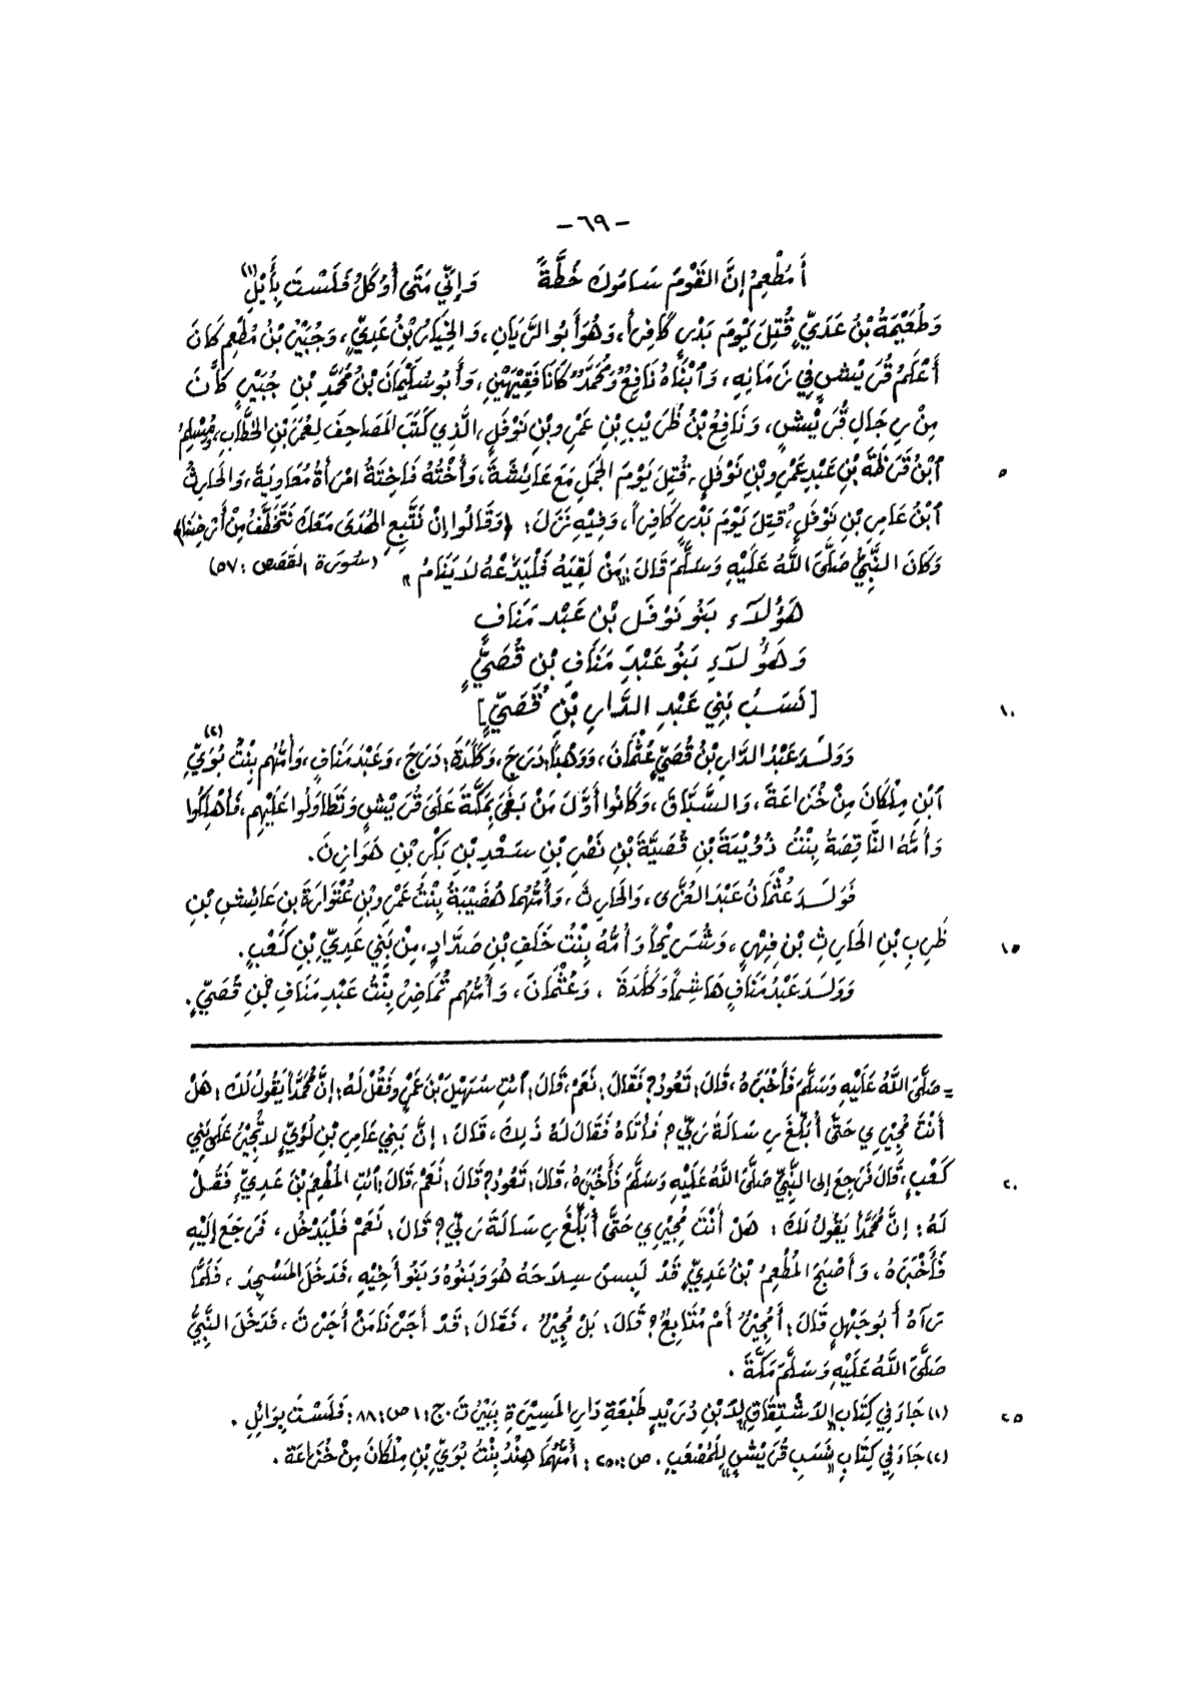 -٦٩-
أَمُطْعِمُ إِنَّ القَوْمَ سَامُوكَ خُطَّةً وَإِنِّي مَتَى أُوكَلْ فَلَسْتَ بِأَيْلِ (١)
وَطُعَيْمَةُ بْنُ عَدَيٍّ قُتِلَ يَوْمَ بَدْرٍ كَافِراً، وَهُوَ أَبُو الرَّيَانِ، وَالخِيَارُ بْنُ عَدِيٍّ، وَجُبَيْرُ بْنُ مُطْعِمٍ كَانَ
أَعْلَمَ قُرَيْشٍ فِي زَمَانِهِ، وَٱبْنَاهُ نَافِعٌ وَمُحَمَّدٌ كَانَا فَقِيهَيْنِ، وَأَبُو سُلَيْمَانَ بْنُ مُحَمَّدِ بْنِ جُبَيْرٍ كَانَ
مِنْ رِجَالِ قُرَيْشٍ، وَنَافِعُ بْنُ ظُرَيْبِ بْنِ عَمْرِو بْنِ نَوْفَلٍ، الَّذِي كَتَبَ المَصَاحِفَ لِعُمَرَ بْنِ الخَطَّابِ، وَمُسْلِمُ
ٱبْنُ قَرَظَةَ بْنِ عَبْدِ عَمْرِو بْنِ نَوْفَلٍ، قُتِلَ يَوْمَ الجَمَلِ مَعَ عَائِشَةَ، وَأُخْتُهُ فَاخِتَةُ امْرَأَةُ مُعَاوِيَةَ، وَالحَارِثُ ٥
ٱبْنُ عَامِرِ بْنِ نَوْفَلٍ، قُتِلَ يَوْمَ بَدْرٍ كَافِراً، وَفِيْهِ نَزَلَ: ﴿وَقَالُوا إِنْ نَتَّبِعِ الهُدَى مَعَكَ نُتَخَطَّفْ مِنْ أَرْضِنَا﴾
وَكَانَ النَّبِيُّ صَلَّى اللَّهُ عَلَيْهِ وَسَلَّمَ قَالَ: «مَنْ لَقِيَهُ فَلْيَدَعْهُ لِأَيْتَامِ» (سُورَة القَصَص : ٥٧)
هَؤُلَاءِ بَنُو نَوْفَلِ بْنِ عَبْدِ مَنَافٍ
وَهَؤُلَاءِ بَنُو عَبْدِ مَنَافِ بْنِ قُصَيٍّ
[نَسَبُ بَنِي عَبْدِ الدَّارِ بْنِ قُصَيٍّ] ١٠
وَوَلَدَ عَبْدُ الدَّارِ بْنُ قُصَيٍّ عُثْمَانَ، وَوَهْباً، دَرَجَ، وَكَلَدَةَ؛ دَرَجَ، وَعَبْدَ مَنَافٍ، وَأُمُّهُم بِنْتُ بُوَيِّ (٢)
ٱبْنِ مِلْكَانَ مِنْ خُزَاعَةَ، وَالسَّبَّاقَ، وَكَانُوا أَوَّلَ مَنْ بَغَى بِمَكَّةَ عَلَى قُرَيْشٍ وَتَطَاوَلُوا عَلَيْهِم، فَأُهْلِكُوا
وَأُمُّهُ النَّاقِصَةُ بِنْتُ ذُؤَيْبَةَ بْنِ قُصَيَّةَ بْنِ نَصْرِ بْنِ سَعْدِ بْنِ بَكْرِ بْنِ هَوَازِنَ.
فَوَلَدَ عُثْمَانُ عَبْدَ العُزَّى، وَالحَارِثَ، وَأُمُّهُمَا هُضَيْبَةُ بِنْتُ عَمْرِو بْنِ عُتْوَارَةَ بْنِ عَائِشِ بْنِ
ظَرِبِ بْنِ الحَارِثِ بْنِ فِهْرٍ، وَشُرَيْحاً وَأُمُّهُ بِنْتُ خَلَفِ بْنِ صَدَّادٍ، مِنْ بَنِي عَدِيِّ بْنِ كَعْبٍ. ١٥
وَوَلَدَ عَبْدُ مَنَافٍ هَاشِماً وَكَلَدَةَ، وَعُثْمَانَ، وَأُمُّهُم تُمَاضِرُ بِنْتُ عَبْدِ مَنَافِ بْنِ قُصَيٍّ.
= صَلَّى اللَّهُ عَلَيْهِ وَسَلَّمَ فَأَخْبَرَهُ، قَالَ: تَعُودُ؟ فَقَالَ: نَعَمْ، قَالَ: ٱئْتِ سُهَيْلَ بْنَ عَمْرٍو فَقُلْ لَهُ: إِنَّ مُحَمَّداً يَقُولُ لَكَ: هَلْ
أَنْتَ مُجِيْرِي حَتَّى أُبَلِّغَ رِسَالَةَ رَبِّي؟ فَأَتَاهُ فَقَالَ لَهُ ذَلِكَ، قَالَ: إِنَّ بَنِي عَامِرِ بْنِ لُؤَيٍّ لَا تُجِيْرُ عَلَى بَنِي
كَعْبٍ، قَالَ فَرَجَعَ إِلى النَّبِيِّ صَلَّى اللَّهُ عَلَيْهِ وَسَلَّمَ فَأَخْبَرَهُ، قَالَ: تَعُودُ؟ قَالَ: نَعَمْ، قَالَ: ٱئْتِ المُطْعِمَ بْنَ عَدِيٍّ فَقُلْ ٢٠
لَهُ: إِنَّ مُحَمَّداً يَقُولُ لَكَ: هَلْ أَنْتَ مُجِيْرِي حَتَّى أُبَلِّغَ رِسَالَةَ رَبِّي؟ قَالَ: نَعَمْ فَلْيَدْخُلْ، فَرَجَعَ إِلَيْهِ
فَأَخْبَرَهُ، وَأَصْبَحَ المُطْعِمُ بْنُ عَدِيٍّ قَدْ لَبِسَ سِلَاحَهُ هُوَ وَبَنُوهُ وَبَنُو أَخِيْهِ، فَدَخَلَ المَسْجِدَ، فَلَمَّا
رَآهُ أَبُو جَهْلٍ قَالَ: أَمُجِيْرٌ أَمْ مُتَابِعٌ؟ قَالَ: بَلْ مُجِيْرٌ، فَقَالَ: قَدْ أَجَرْنَا مَنْ أَجَرْتَ، فَدَخَلَ النَّبِيُّ
صَلَّى اللَّهُ عَلَيْهِ وَسَلَّمَ مَكَّةَ.
(١) جَاءَ فِي كِتَابِ «الاشْتِقَاقِ» لِابْنِ دُرَيْدٍ طَبْعَةِ دَارِ المَسِيْرَةِ بَبَيْرُتَ. ج: ١ ص: ٨٨: فَلَسْتَ بِوَائِلِ. ٢٥
(٢) جَاءَ فِي كِتَابِ «نَسَبِ قُرَيْشٍ» لِلمُصْعَبِ. ص: ٢٥٠: أُمُّهُمَا هِنْدُ بِنْتُ بُوَيِّ بْنِ مِلْكَانَ مِنْ خُزَاعَةَ.